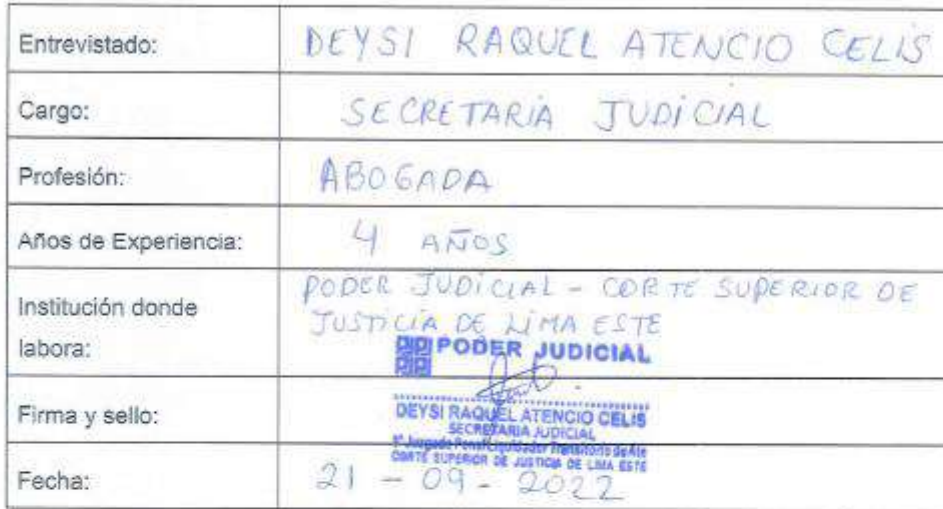 Entrevistado: DEYSI RAQUEL ATENCIO CELIS
Cargo: SECRETARIA JUDICIAL
Profesión: ABOGADA
Años de Experiencia: 4 AÑOS
Institución donde labora: PODER JUDICIAL - CORTE SUPERIOR DE
JUSTICIA DE LIMA ESTE
PODER JUDICIAL
Firma y sello:
DEYSI RAQUEL ATENCIO CELIS
SECRETARIA JUDICIAL
Juzgado Penal Liquidador Transitorio de Ate
CORTE SUPERIOR DE JUSTICIA DE LIMA ESTE
Fecha: 21 - 09 - 2022